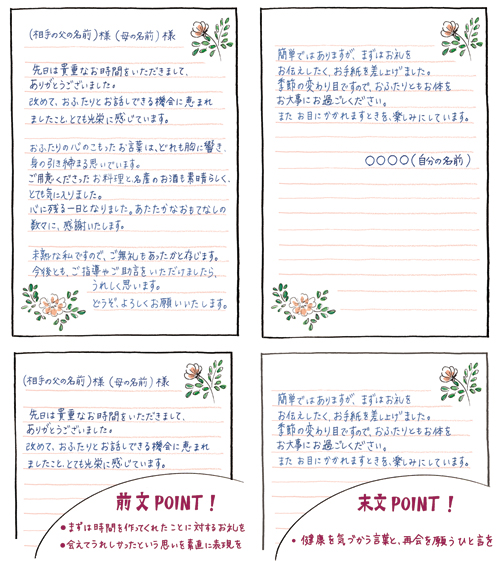 (相手の父の名前)様(母の名前)様
先日は貴重なお時間をいただきまして、
ありがとうございました。
改めて、おふたりとお話しできる機会に恵まれ
ましたこと、とても光栄に感じています。
おふたりの心のこもったお言葉は、どれも胸に響き、
身の引き締まる思いでいます。
ご用意くださったお料理と名産のお酒も素晴らしく、
とても気に入りました。
心に残る一日となりました。あたたかなおもてなしの
数々に、感謝いたします。
未熟な私ですので、ご無礼もあったかと存じます。
今後とも、ご指導やご助言をいただけましたら、
うれしく思います。
どうぞ、よろしくお願いいたします。
簡単ではありますが、まずはお礼を
お伝えしたく、お手紙を差し上げました。
季節の変わり目ですので、おふたりともお体を
お大事にお過ごしください。
また お目にかかれますときを、楽しみにしています。
○○○○(自分の名前)
(相手の父の名前)様(母の名前)様
先日は貴重なお時間をいただきまして、
ありがとうございました。
改めて、おふたりとお話しできる機会に恵まれ
ましたこと、とても光栄に感じています。
前文POINT!
●まずは時間を作ってくれたことに対するお礼を
●会えてうれしかったという思いを素直に表現を
簡単ではありますが、まずはお礼を
お伝えしたく、お手紙を差し上げました。
季節の変わり目ですので、おふたりともお体を
お大事にお過ごしください。
また お目にかかれますときを、楽しみにしています。
末文POINT!
・健康を気づかう言葉と、再会を願うひと言を